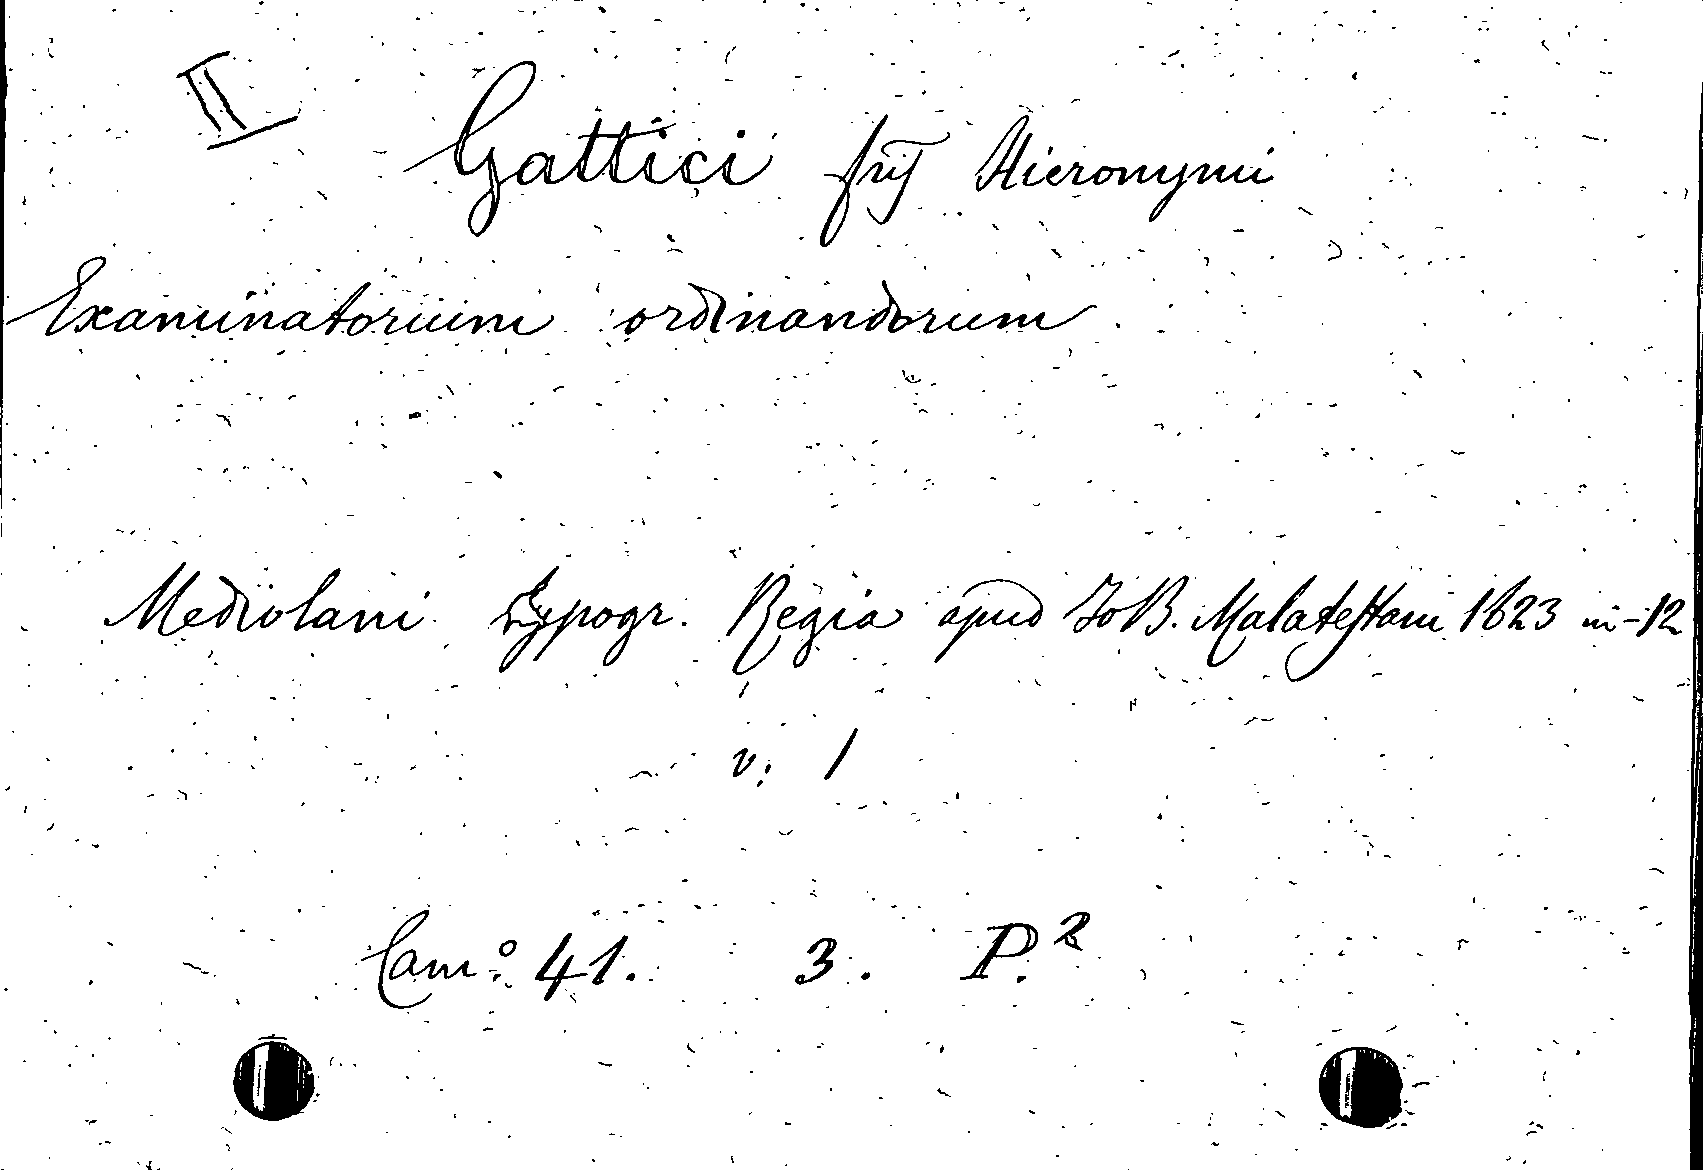 II
Gattici frij Hieronymi
Examinatorium ordinandorum
Mediolani Typogr. Regia apud Jo B. Malatestam 1623 in-12
v: 1
Cam.º 41. 3. P.2